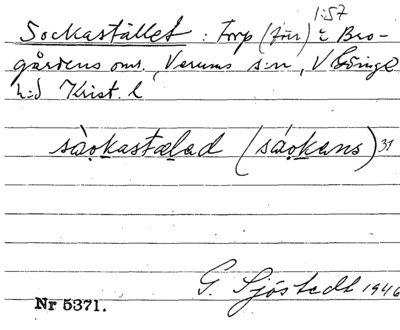 1:57
Sockastället : Torp (förr) & Bro-
gårdens omr., Verums s:n, V Göinge
h:d Krist. l
sàokastælad (sáokans) 31
G. Sjöstedt 1946
Nr 5371.